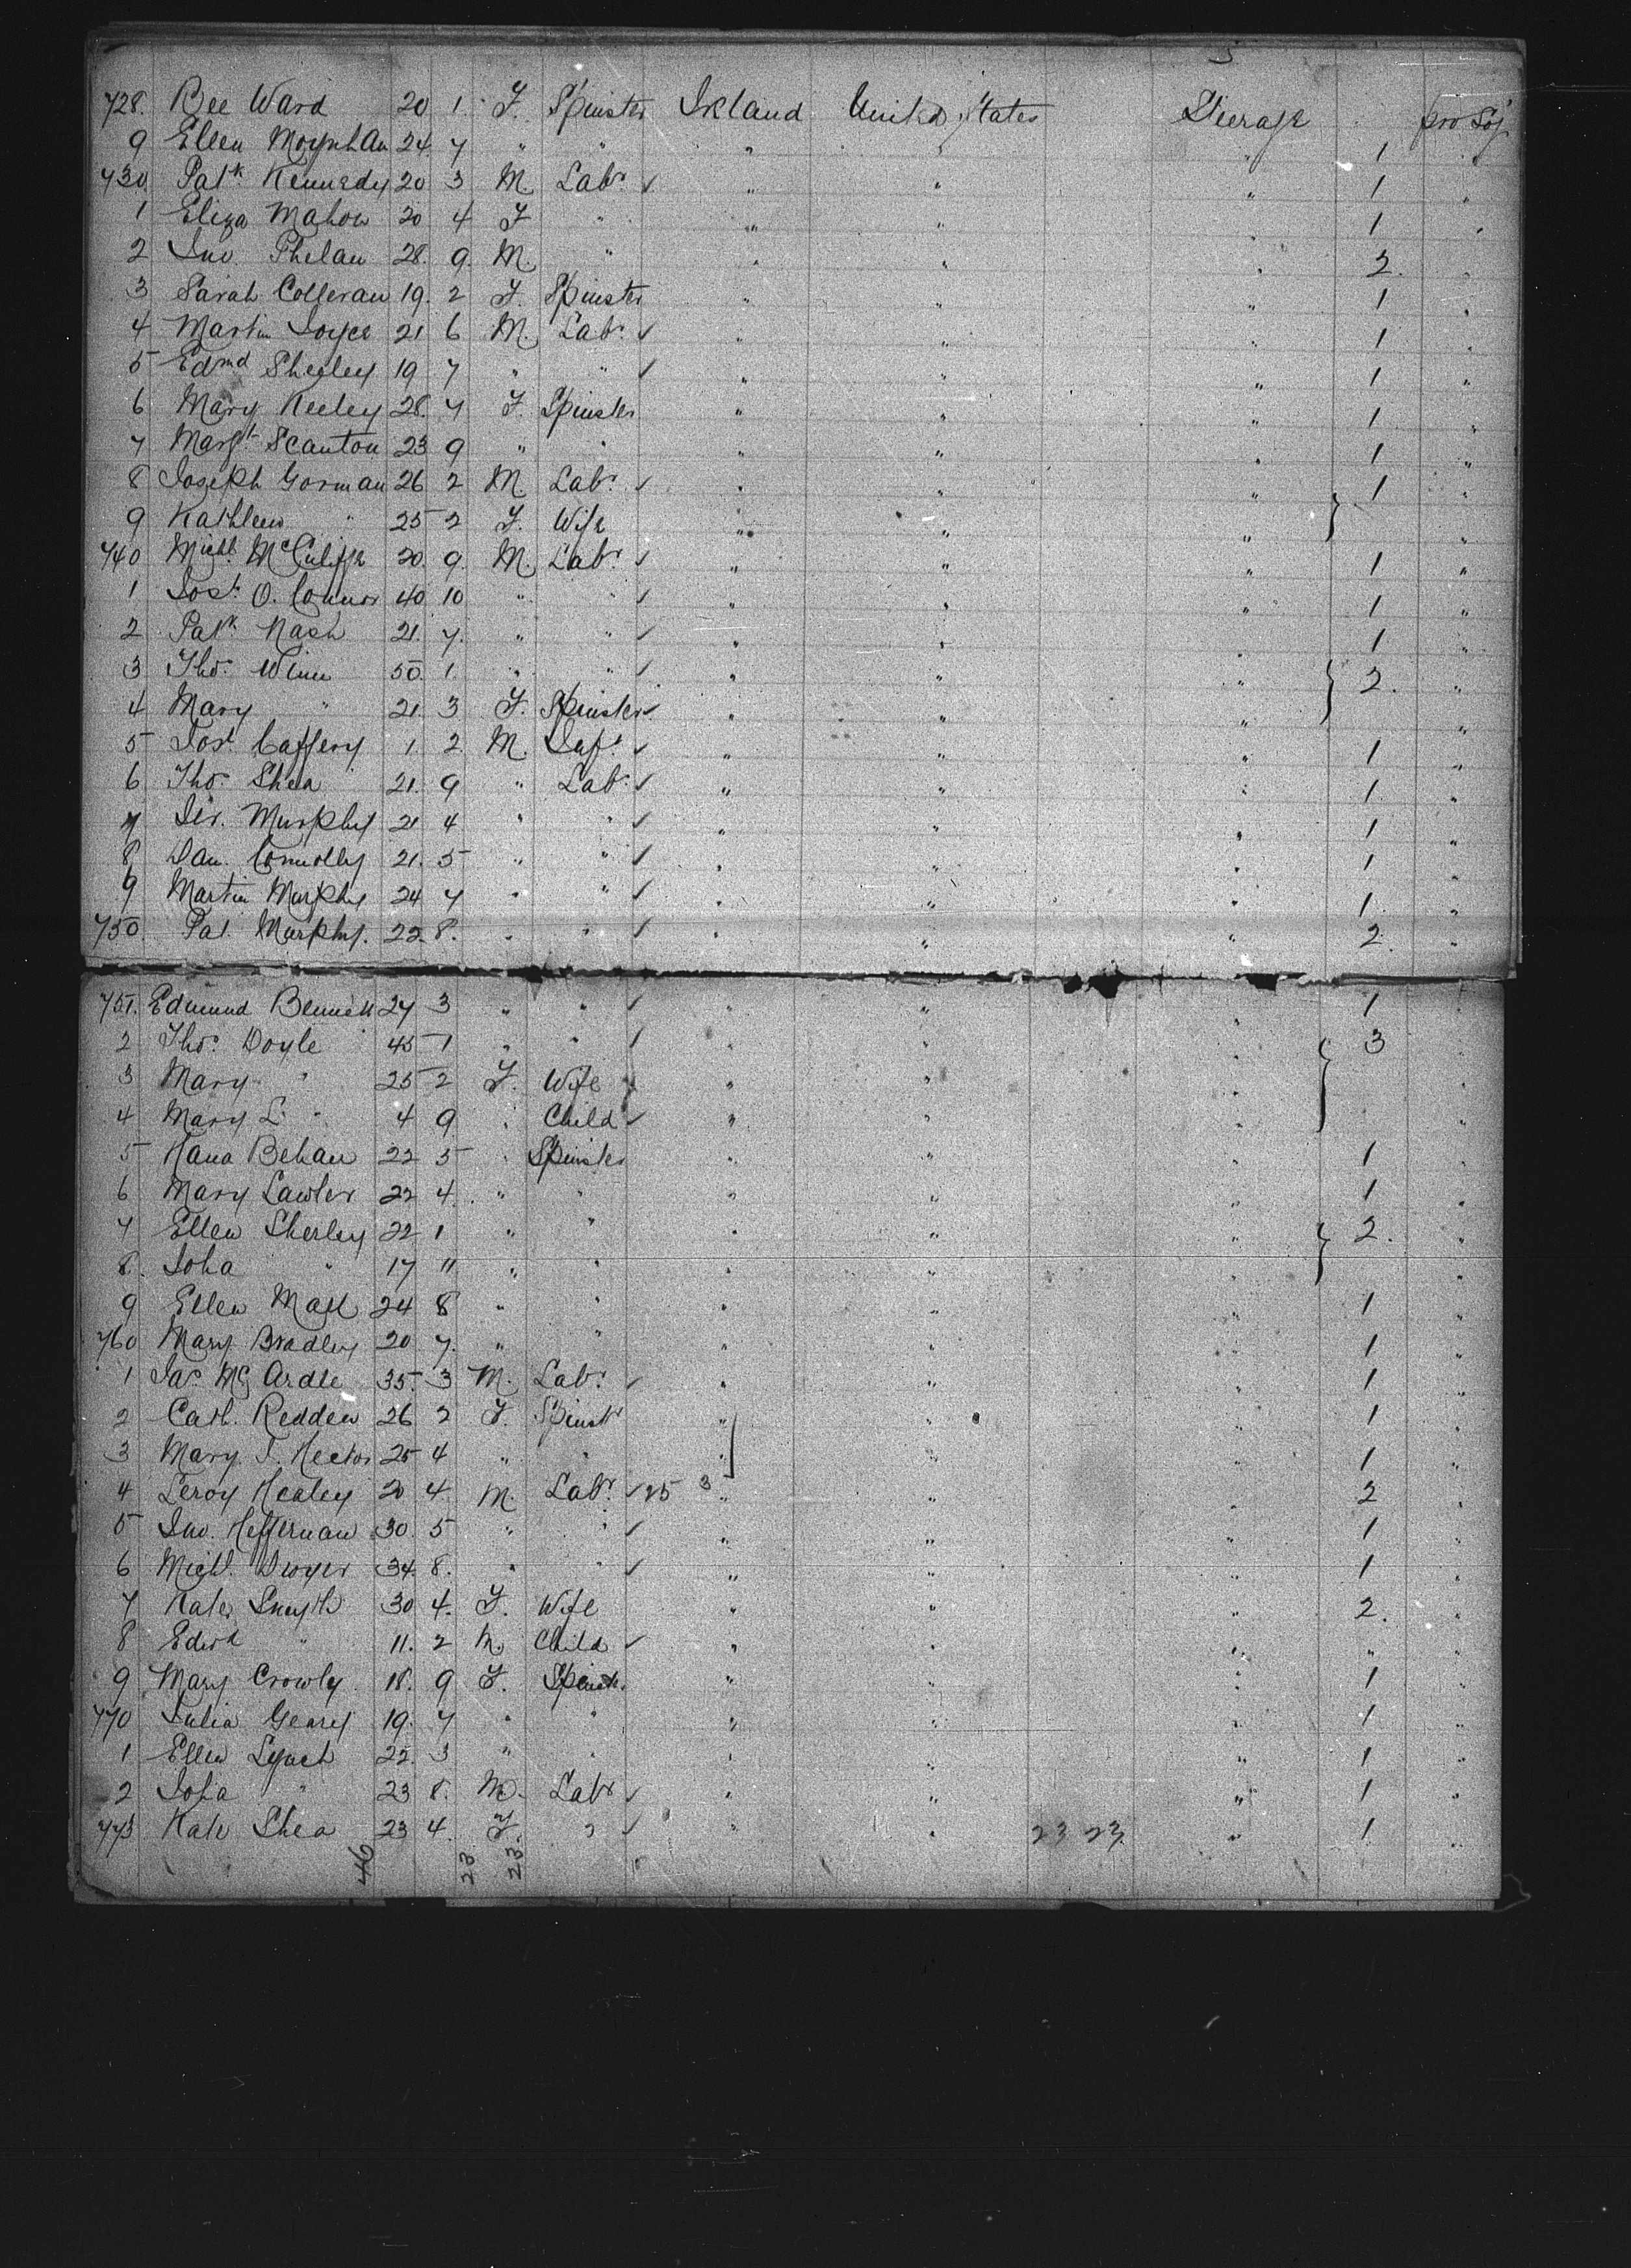 728. Bee Ward 20 1. F. Spinster Ireland United States Steerage pro Soj
9 Ellen Moynhan 24. 7 " " " " " 1 "
730 Patk. Kennedy 20 3 M. Labr. ✓ " " " 1 "
1 Eliza Mahon 20 4 F " " " " 1 "
2 Jno. Phelan 28. 9. M. " " " " 2. "
3 Sarah Colleran 19. 2 F. Spinster " " " 1 "
4 Martin Joyce 21 6 M. Labr. ✓ " " " 1 "
5 Edmd Shegley 19 7 " " ✓ " " " 1 "
6 Mary Keeley 28. 7 F. Spinster " " " 1 "
7 Margt. Scanton 23 9 " " " " " 1 "
8 Joseph Gorman 26 2 M. Labr. ✓ " " " 1 "
9 Kathleen " 25 2 F. Wife " " " "
740 Michl. McCuliffe 20. 9. M. Labr. ✓ " " " 1 "
1 Jos. O. Connor 40 10 " " ✓ " " " 1 "
2 Patk Nash 21. 7. " " ✓ " " " 1 "
3 Thos. Winn 50. 1. " " ✓ " " " 2. "
4 Mary " 21. 3 F. Spinster ✓ " " " "
5 Jos. Caffery 1. 2 M. Inft. ✓ " " " 1 "
6 Thos. Shea 21. 9 " Labr. ✓ " " " 1. "
7 Jer. Murphy 21 4 " " ✓ " " " 1 "
8 Dan. Connolly 21. 5 " " ✓ " " " 1 "
9 Martin Murphy 24 7 " " ✓ " " " 1. "
750. Pat. Murphy. 22. 8. " " ✓ " " " 2. "
751. Edmund Bennett 27 3 " " ✓ " " " 1 "
2 Thos. Doyle 45 1 " " ✓ " " " 3
3 Mary " 25 2 F. Wife " " " "
4 Mary L. " 4 9 " Child ✓ " " " "
5 Hana Behan 22 5 " Spinster " " " 1 "
6 Mary Lawler 22 4. " " " " " 1 "
7 Ellen Sherley 22 1 " " " " " 2. "
8. Joha " 17 11 " " " " " "
9 Ellen Mall 24 8 " " " " " 1 "
760 Mary Bradley 20 7. " " " " " 1 "
1 Jas. McArdle 35. 3 M. Labr. ✓ " " " 1 "
2 Cath. Redden 26 2 F. Spinstr " " " 1 "
3 Mary J. Hector 25 4 " " " " " 1 "
4 Leroy Healey 20 4 M. Labr. ✓ 25 3 " " " 2 "
5 Jno. Heffernan 30. 5 " " ✓ " " " 1 "
6 Michl. Dwyer 34. 8. " " ✓ " " " 1 "
7 Kate Smyth 30 4. F. Wife " " " 2. "
8 Edwd " 11. 2 M. Child ✓ " " " " "
9 Mary Crowly 18. 9 F. Spinstr. " " " 1 "
770 Julia Geary 19. 7 " " " " " 1 "
1 Ellen Lynch 22. 3 " " " " " 1 "
2 Joha " 23 8. M. Labr ✓ " " " 1 "
773 Kate Shea 23 4. F. " ✓ " " 23 23. " 1. "
46 23 23.